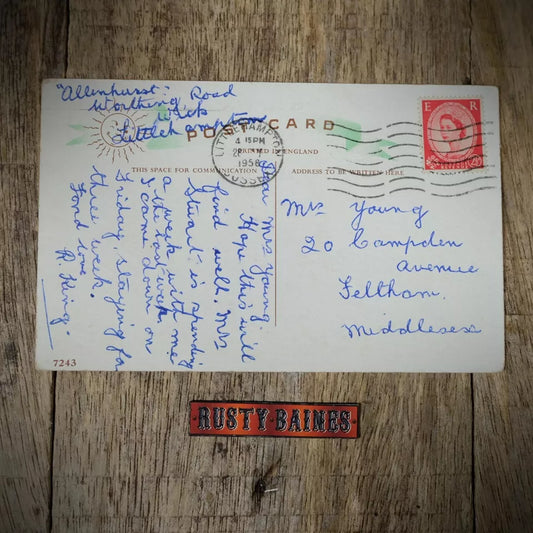 "Allenhurst". Road
Worthing
Wick
Littlehampton
POST CARD
PRINTED IN ENGLAND
THIS SPACE FOR COMMUNICATION
ADDRESS TO BE WRITTEN HERE
LITTLEHAMPTON
4 15PM
1958
SUSSEX
E R
Dear Mrs Young.
Hope this will
find well. Mrs
Stuart is spending
a week with me
the last week
I came down on
Friday, staying for
three week.
Fond love
R King.
Mrs Young
20 Campden
Avenue
Feltham.
Middlesex
7243
·RUSTY·BAINES·